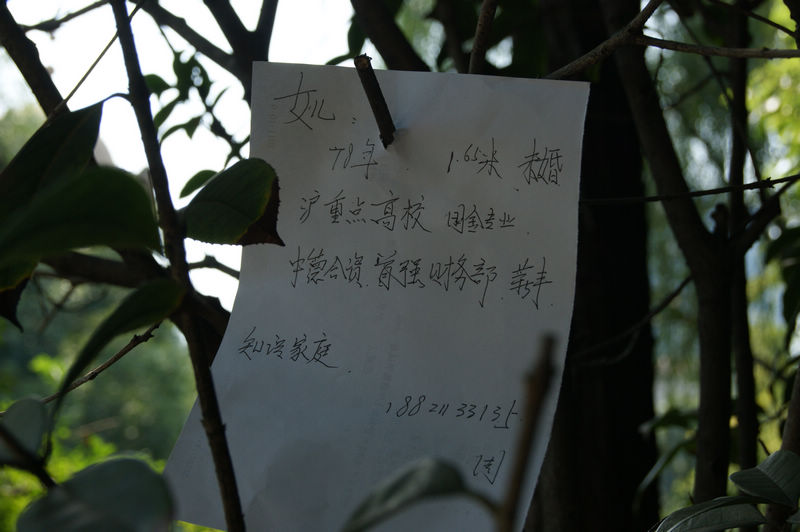 女儿：
78年. 1.65米 未婚
沪重点高校 国金专业.
中德合资. 首强 财务部. 薪丰.
知识家庭.
周